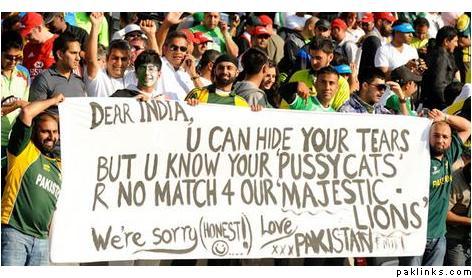 DEAR INDIA,
U CAN HIDE YOUR TEARS
BUT U KNOW YOUR 'PUSSYCATS'
R NO MATCH 4 OUR 'MAJESTIC -
LIONS'
We're sorry (HONEST!) Love
xxx PAKISTAN
PAKISTAN
paklinks.com